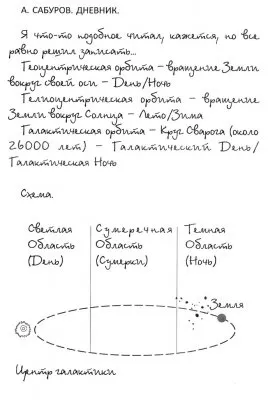 А. САБУРОВ. ДНЕВНИК.
Я что-то подобное читал, кажется, но все
равно решил записать...
Геоцентрическая орбита – вращение Земли
вокруг своей оси – День/Ночь
Гелиоцентрическая орбита – вращение
Земли вокруг Солнца – Лето/Зима
Галактическая орбита – Круг Сварога (около
26000 лет) – Галактический День/
Галактическая Ночь
Схема.
Светлая
Область
(День)
Сумеречная
Область
(Сумерки)
Темная
Область
(Ночь)
Земля
Центр галактики